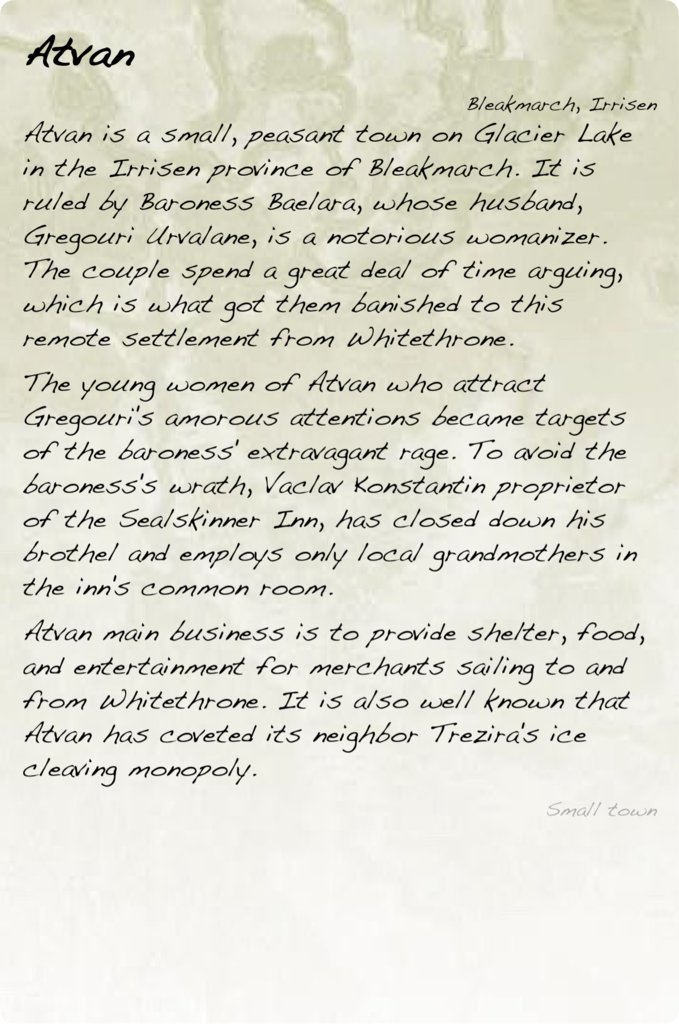 Atvan
Bleakmarch, Irrisen
Atvan is a small, peasant town on Glacier Lake
in the Irrisen province of Bleakmarch. It is
ruled by Baroness Baelara, whose husband,
Gregouri Urvalane, is a notorious womanizer.
The couple spend a great deal of time arguing,
which is what got them banished to this
remote settlement from Whitethrone.
The young women of Atvan who attract
Gregouri's amorous attentions became targets
of the baroness' extravagant rage. To avoid the
baroness's wrath, Vaclav Konstantin proprietor
of the Sealskinner Inn, has closed down his
brothel and employs only local grandmothers in
the inn's common room.
Atvan main business is to provide shelter, food,
and entertainment for merchants sailing to and
from Whitethrone. It is also well known that
Atvan has coveted its neighbor Trezira's ice
cleaving monopoly.
Small town